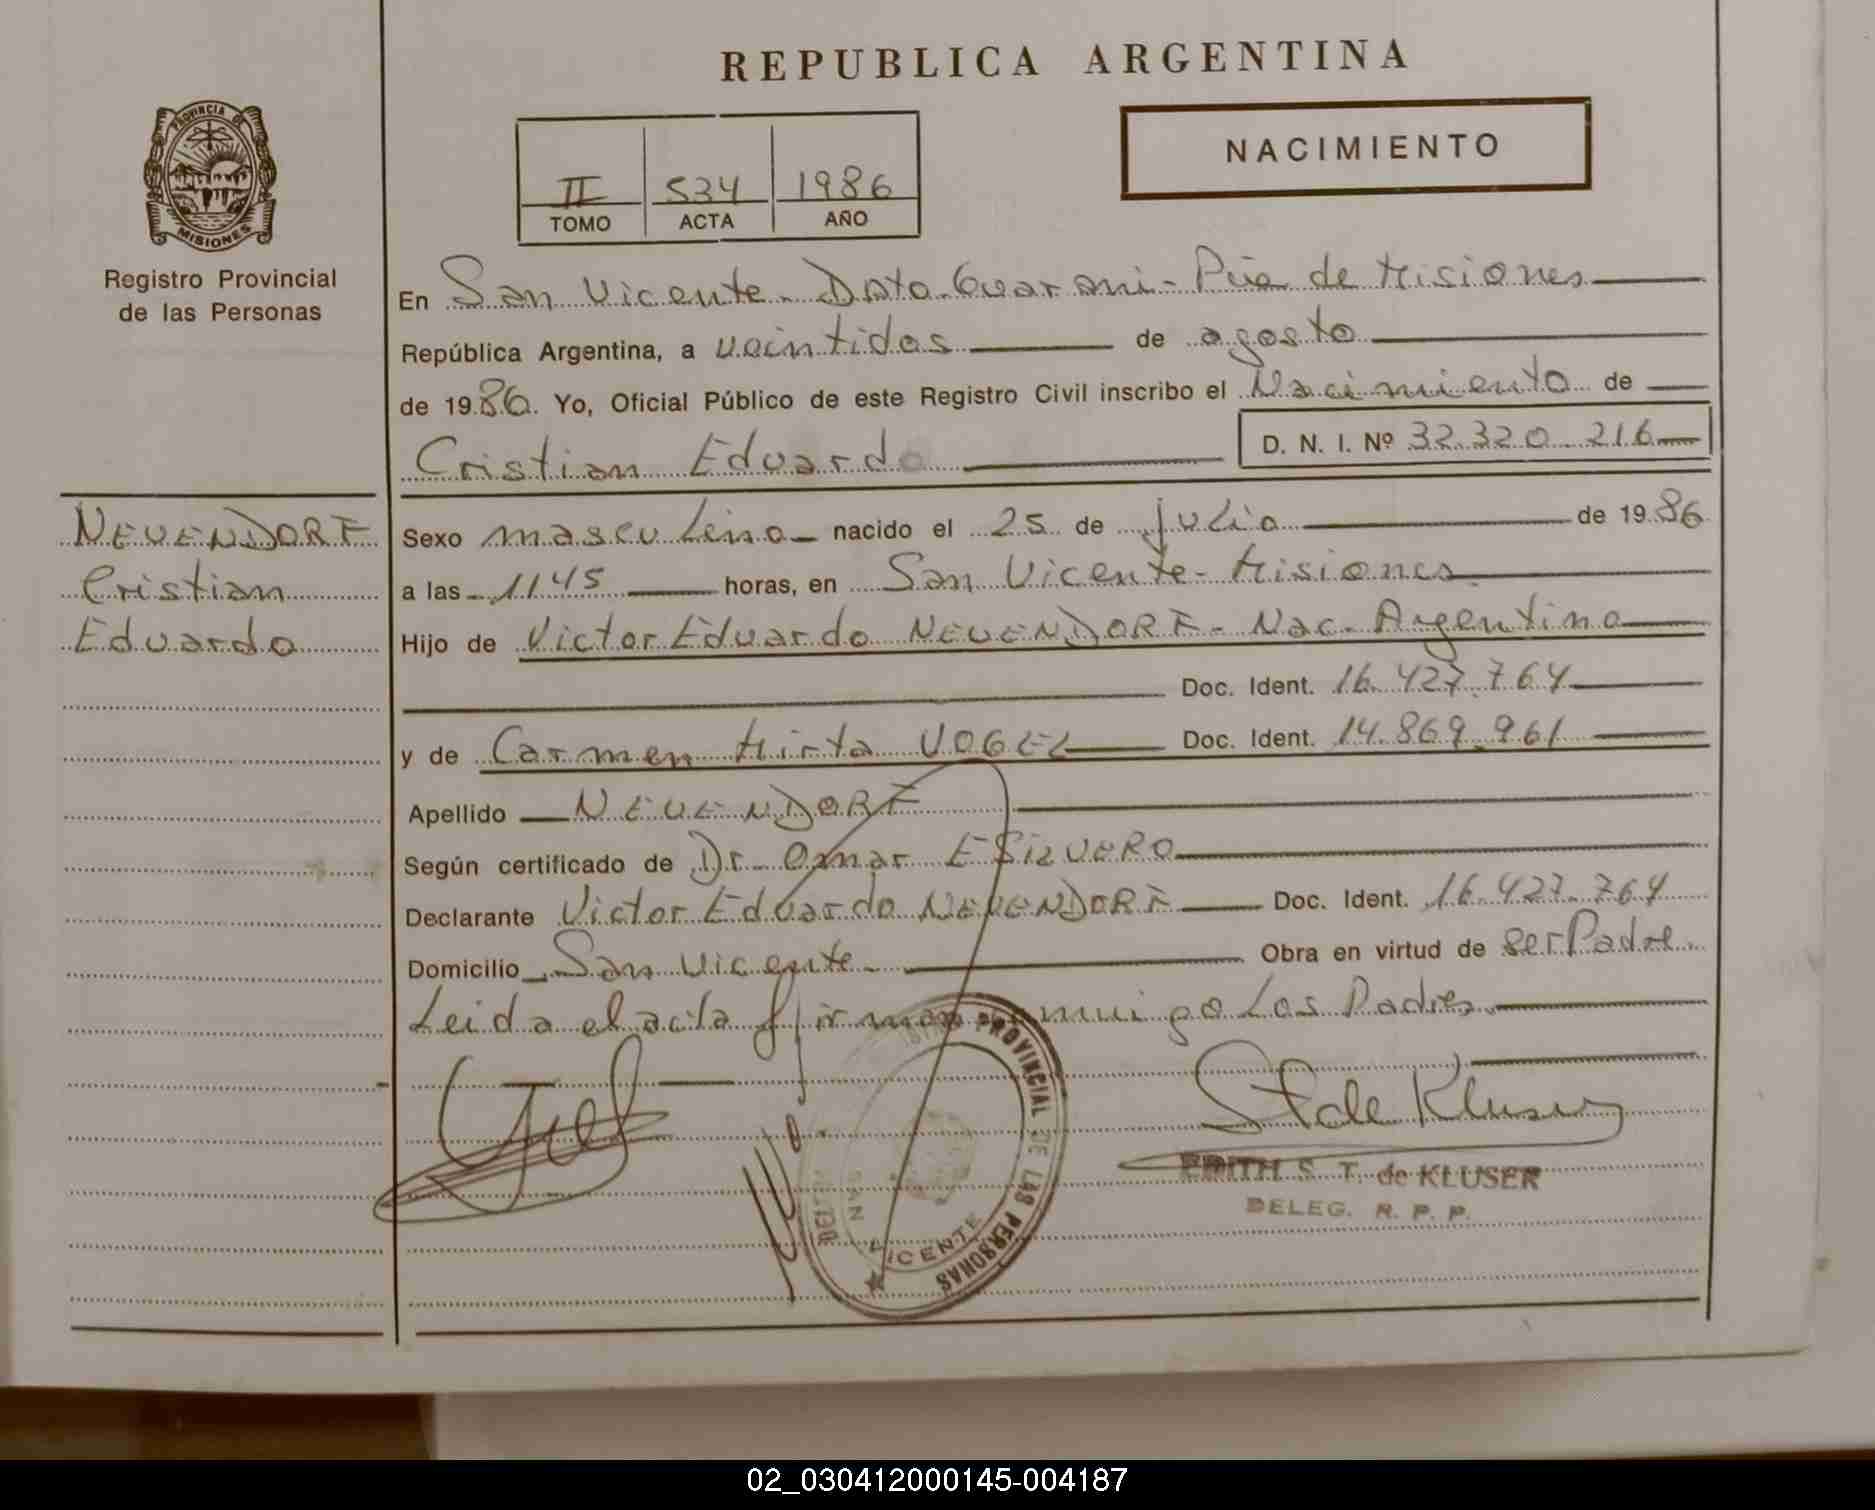 REPUBLICA ARGENTINA
PROVINCIA DE
MISIONES
Registro Provincial
de las Personas
II 534 1986
TOMO ACTA AÑO
NACIMIENTO
En San Vicente - Dpto Guarani - Pcia de Misiones
República Argentina, a veintidos de agosto
de 1986. Yo, Oficial Público de este Registro Civil inscribo el Nacimiento de
Cristian Eduardo D. N. I. Nº 32.320.216
NEUENDORF
Cristian
Eduardo
Sexo masculino nacido el 25 de julio de 1986
a las 1145 horas, en San Vicente - Misiones
Hijo de Victor Eduardo NEUENDORF - Nac - Argentino
Doc. Ident. 16.427.764
y de Carmen Mirta VOGEL Doc. Ident. 14.869.961
Apellido NEUENDORF
Según certificado de Dr. Omar
Declarante Victor Eduardo NEUENDORF Doc. Ident. 16.427.764
Domicilio San Vicente Obra en virtud de ser Padre
Leida el acta firman Los Padres
PROVINCIAL DE LAS PERSONAS
SAN VICENTE
S T de Kluser
EDITH S. T. de KLUSER
DELEG. R. P. P.
02_030412000145-004187